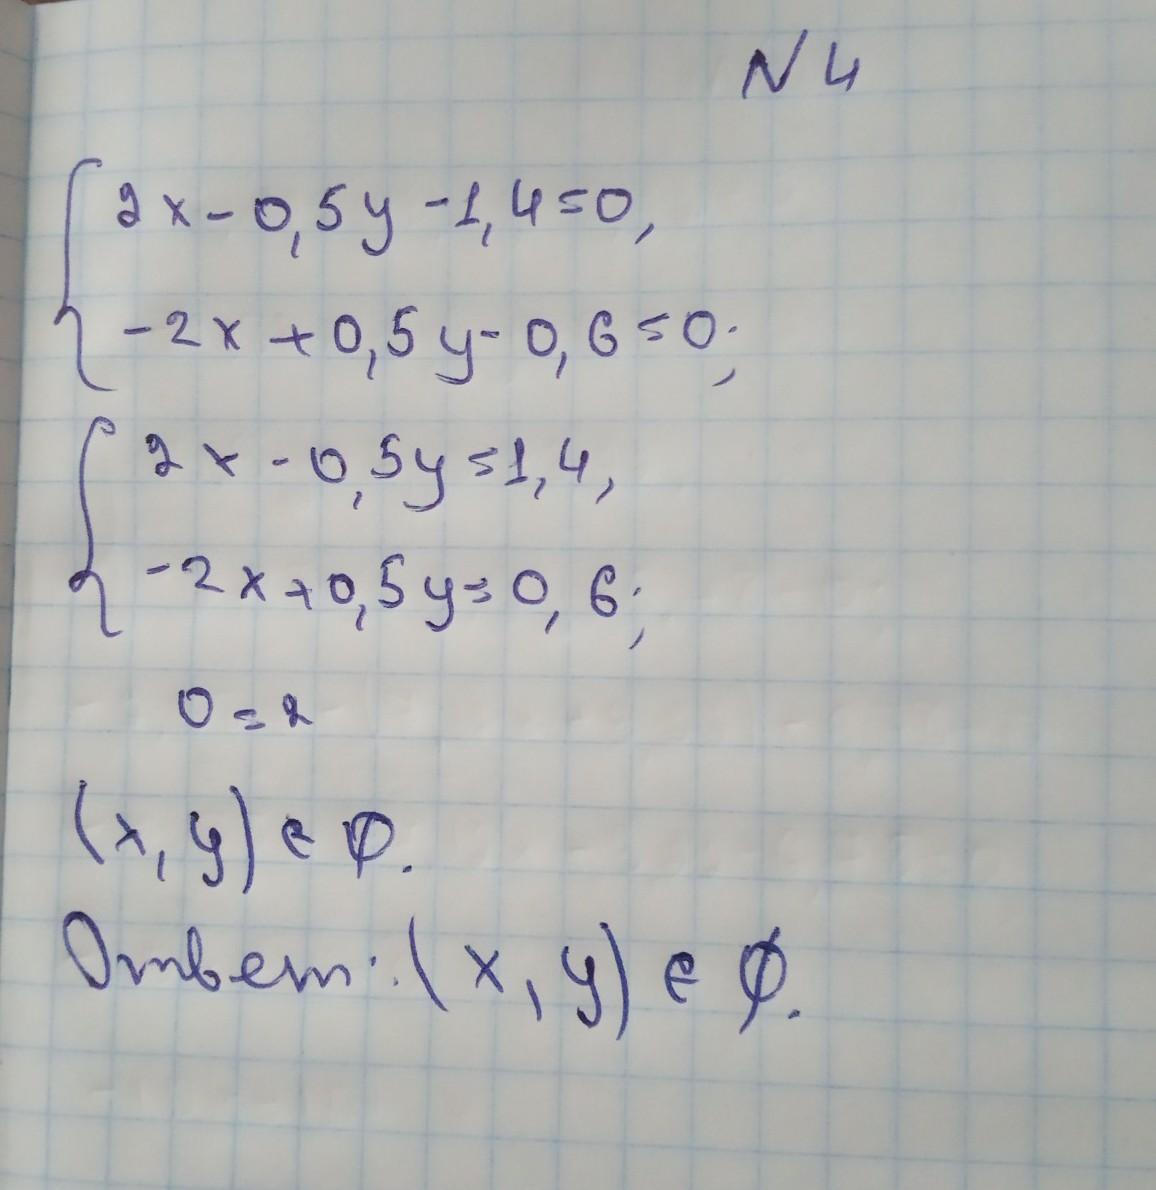 N 4
2x - 0,5y - 1,4 = 0,
-2x + 0,5y - 0,6 = 0;
2x - 0,5y = 1,4,
-2x + 0,5y = 0,6;
0 = 2
(x, y) ∈ ∅.
Ответ: (x, y) ∈ ∅.